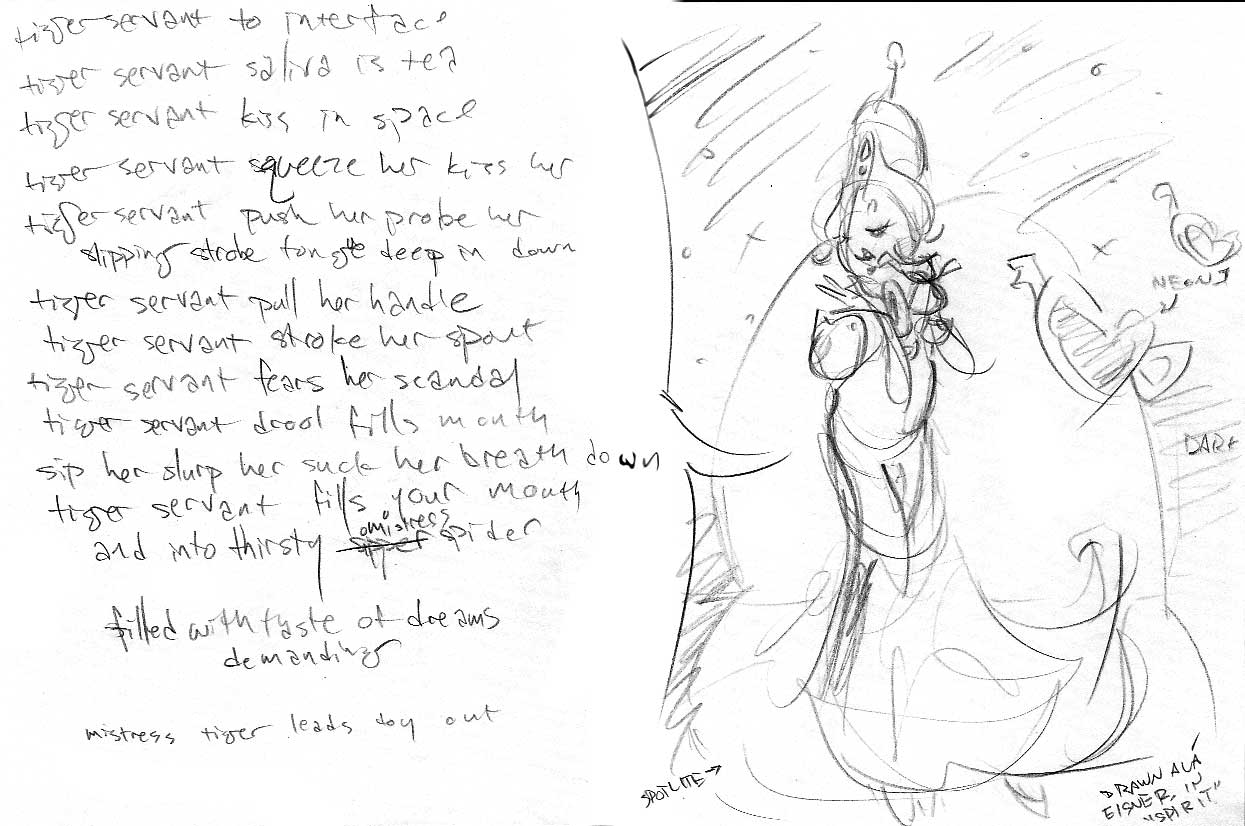 tiger servant to interface
tiger servant saliva is tea
tiger servant kiss in space
tiger servant squeeze her kiss her
tiger servant push her probe her
slipping strobe tongue deep in down
tiger servant pull her handle
tiger servant stroke her spout
tiger servant fears her scandal
tiger servant drool fills mouth
sip her slurp her suck her breath down
tiger servant fills your mouth
and into thirsty mistress spider
filled with taste of dreams
demanding
mistress tiger leads day out
NEON
DARK
SPOTLITE →
DRAWN ALÁ
EISNER, IN
"SPIRIT"